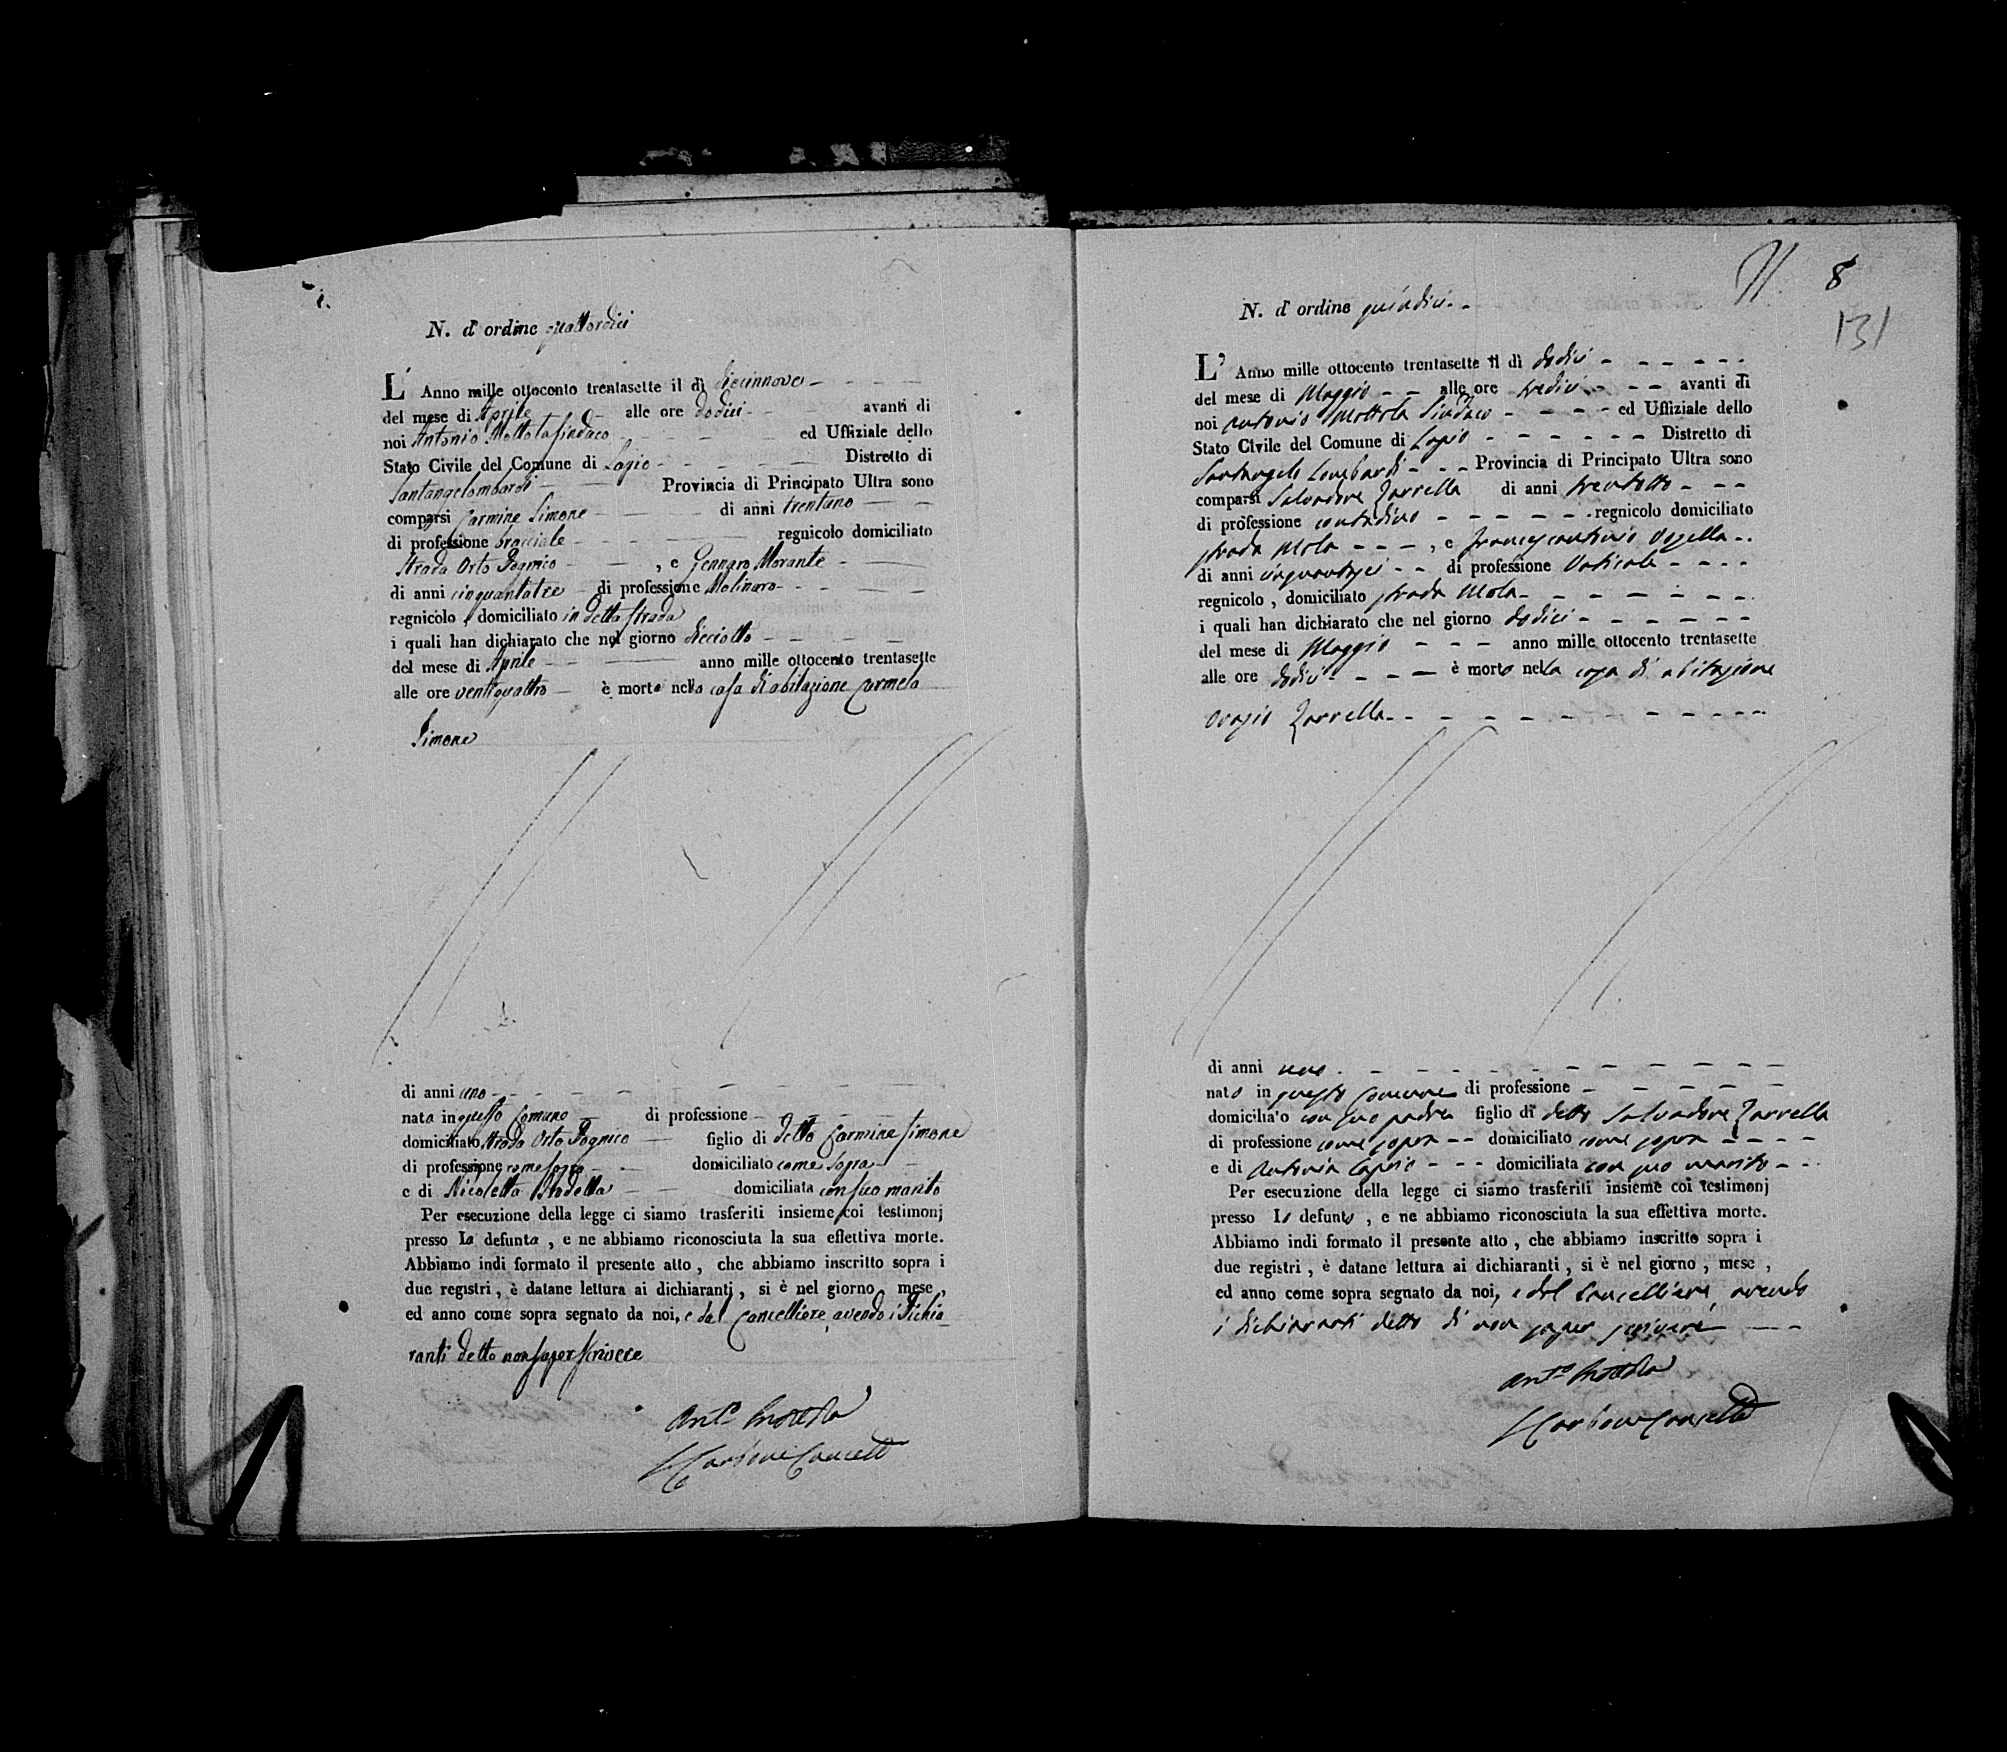 N. d'ordine quattordici
L' Anno mille ottocento trentasette il dì diecinnove
del mese di Aprile alle ore dodici avanti di
noi Antonio Mottola Sindaco ed Uffiziale dello
Stato Civile del Comune di Lapio Distretto di
Santangelombardi Provincia di Principato Ultra sono
comparsi Carmine Simone di anni trentuno
di professione bracciale regnicolo domiciliato
Strada Orto , e Gennaro Morante
di anni cinquantatre di professione Molinaro
regnicolo , domiciliato in detta strada
i quali han dichiarato che nel giorno dieciotto
del mese di Aprile anno mille ottocento trentasette
alle ore ventiquattro è morta nella casa di abitazione Carmela
Simone
di anni uno
nata in questo Comune di professione
domiciliata Strada Orto figlio di detto Carmine Simone
di professione come sopra domiciliato come sopra
e di Nicoletta domiciliata con suo marito
Per esecuzione della legge ci siamo trasferiti insieme coi testimonj
presso la defunta , e ne abbiamo riconosciuta la sua effettiva morte.
Abbiamo indi formato il presente atto , che abbiamo inscritto sopra i
due registri , è datane lettura ai dichiaranti , si è nel giorno mese ,
ed anno come sopra segnato da noi, e dal Cancelliere avendo i dichia
ranti detto non saper scrivere
Ant.o Mottola
Carbone Cancell
8
131
N. d'ordine quindici
L' Anno mille ottocento trentasette il dì dodici
del mese di Maggio alle ore tredici avanti di
noi Antonio Mottola Sindaco ed Uffiziale dello
Stato Civile del Comune di Lapio Distretto di
Santangelo Lombardi Provincia di Principato Ultra sono
comparsi Salvadore Zarrella di anni trentotto
di professione contadino regnicolo domiciliato
strada Mola , e Francescantonio
di anni cinquantasei di professione Vaticale
regnicolo , domiciliato strada Mola
i quali han dichiarato che nel giorno dodici
del mese di Maggio anno mille ottocento trentasette
alle ore dodici è morto nella casa di abitazione
Orazio Zarrella
di anni uno
nato in questo Comune di professione
domiciliato con suo padre figlio di detto Salvadore Zarrella
di professione come sopra domiciliato come sopra
e di Antonia domiciliata con suo marito
Per esecuzione della legge ci siamo trasferiti insieme coi testimonj
presso lo defunto , e ne abbiamo riconosciuta la sua effettiva morte.
Abbiamo indi formato il presente atto , che abbiamo inscritto sopra i
due registri , è datane lettura ai dichiaranti , si è nel giorno , mese ,
ed anno come sopra segnato da noi, e dal Cancelliere, avendo
i dichiaranti detto di non saper scrivere
Ant.o Mottola
Carbone Cancell